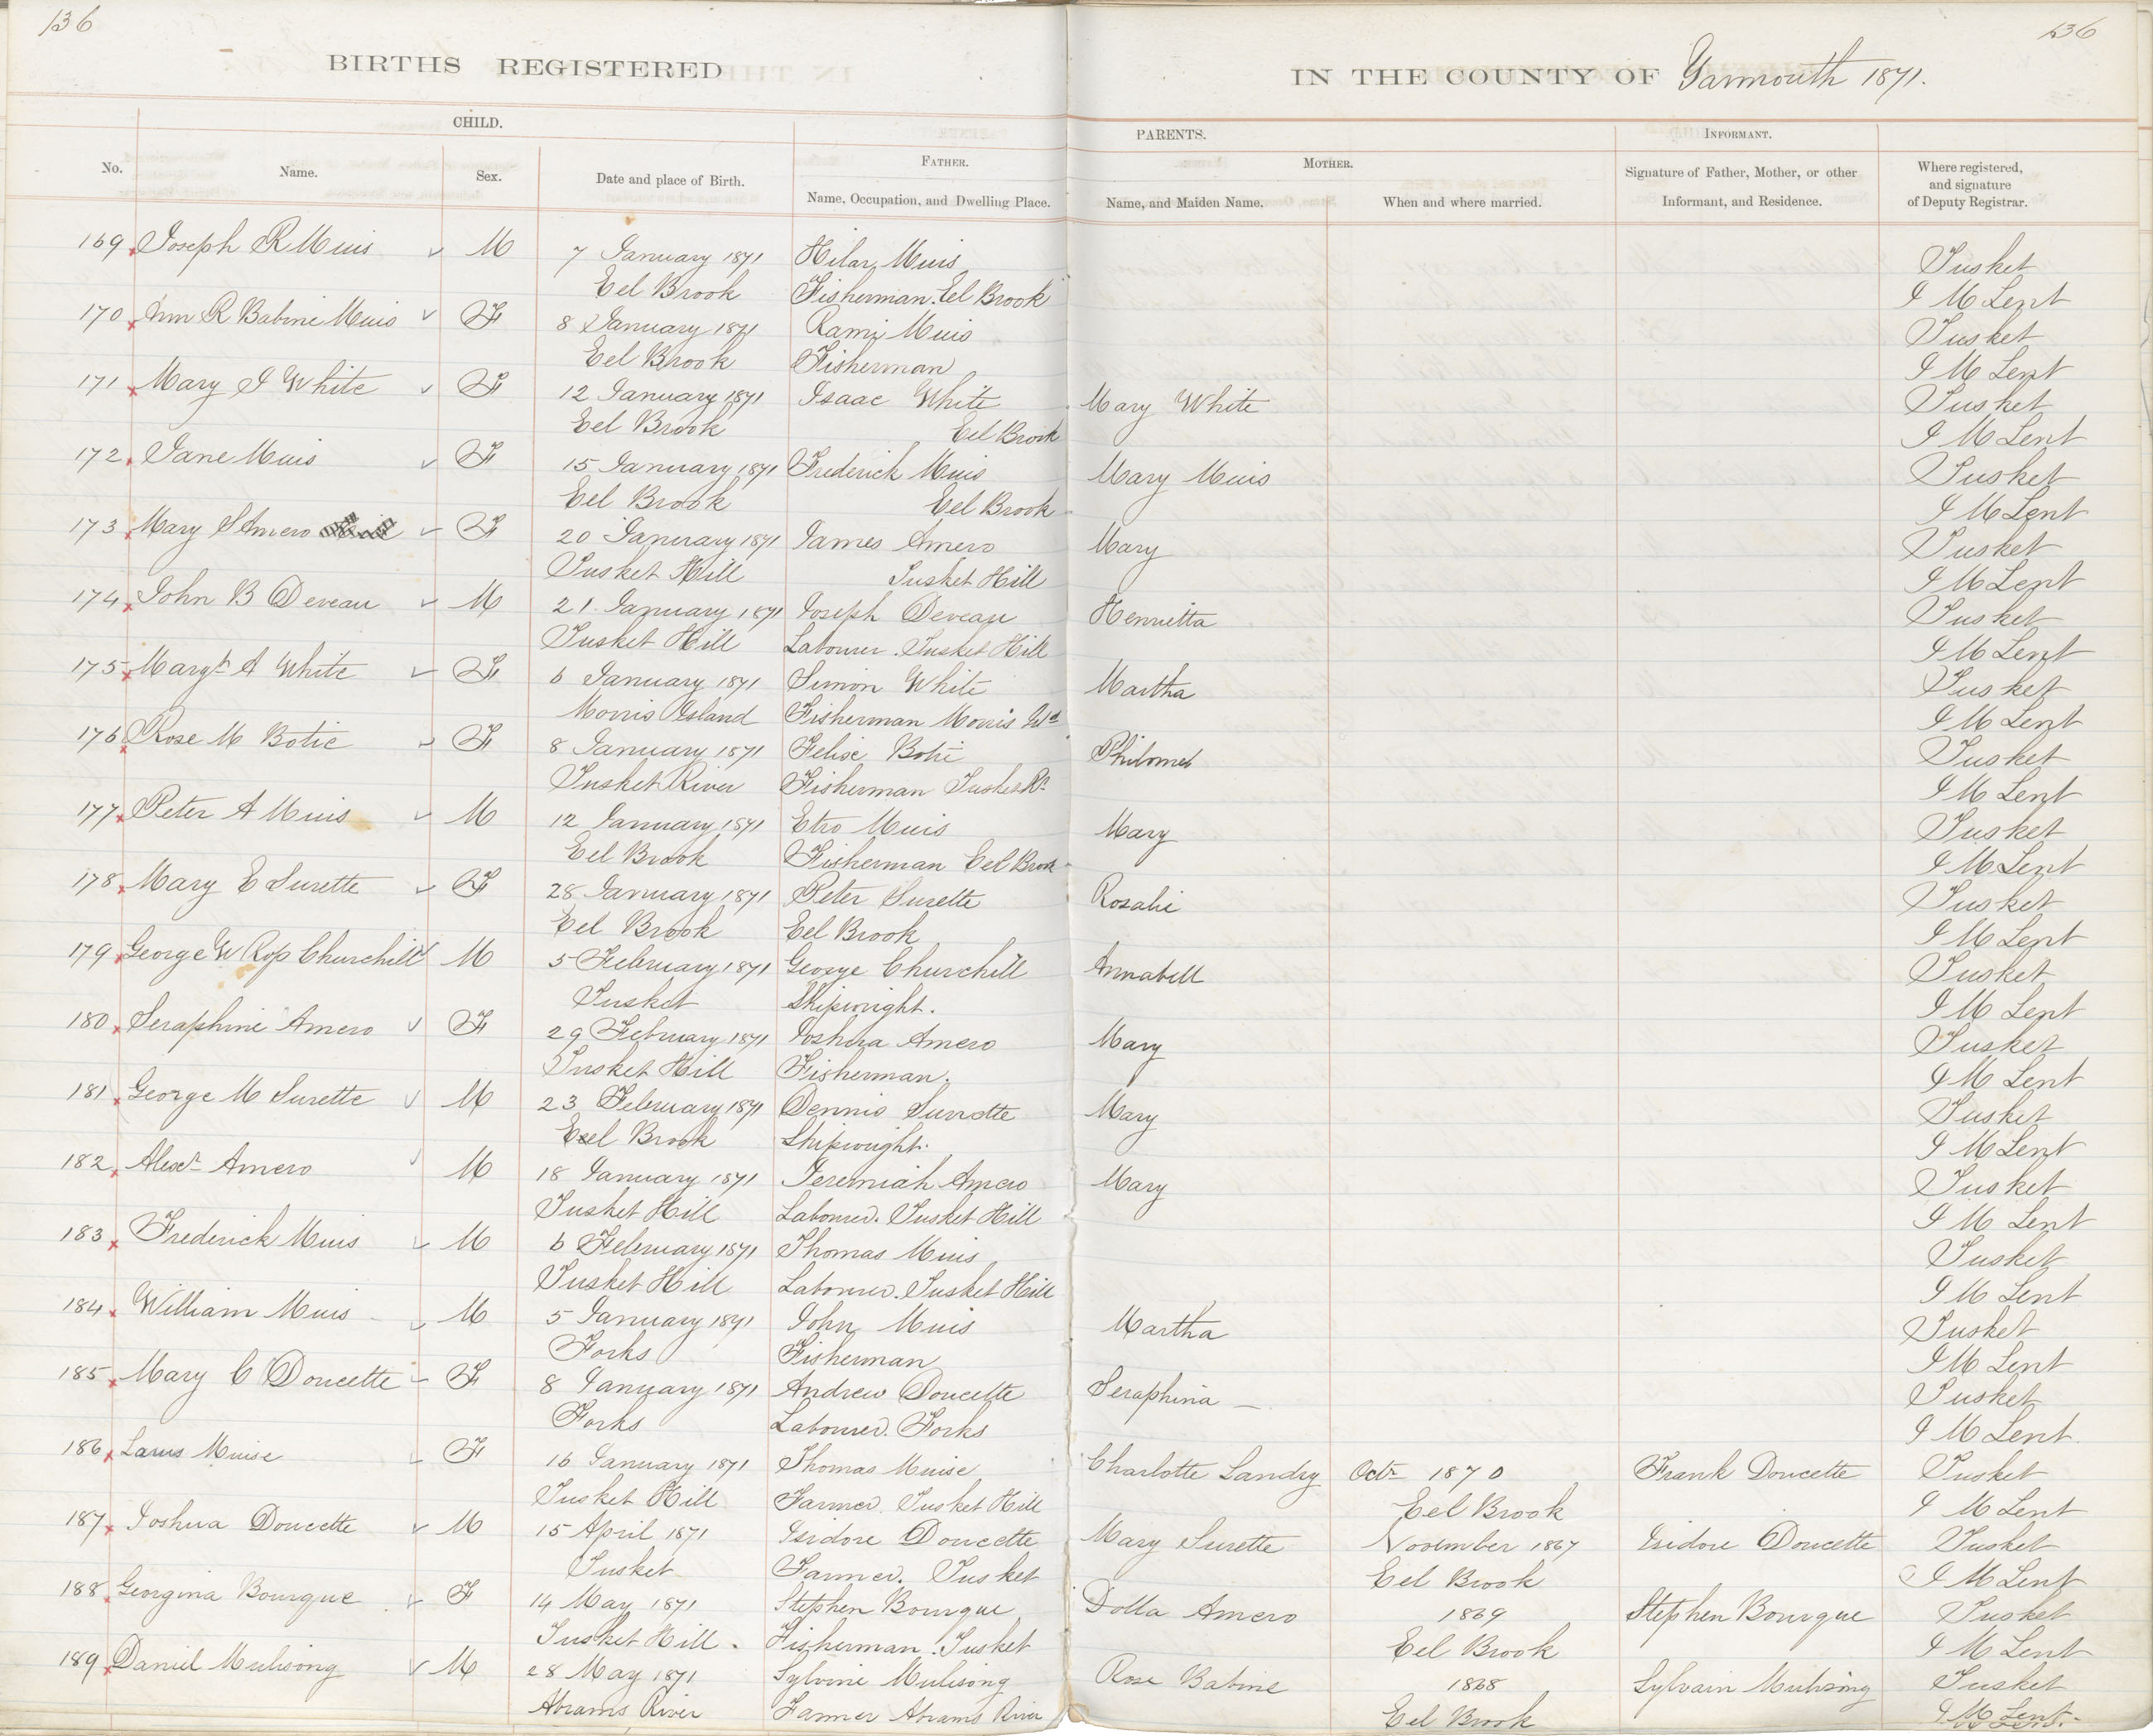 136
136
BIRTHS REGISTERED
IN THE COUNTY OF Yarmouth 1871.
CHILD.
PARENTS.
INFORMANT.
No.
Name.
Sex.
Date and place of Birth.
FATHER.
Name, Occupation, and Dwelling Place.
MOTHER.
Name, and Maiden Name.
When and where married.
Signature of Father, Mother, or other
Informant, and Residence.
Where registered,
and signature
of Deputy Registrar.
169 Joseph R Muis M 7 January 1871 Hilar Muis Tusket
Eel Brook Fisherman. Eel Brook J M Lent
170 Ann R Babine Muis F 8 January 1871 Rami Muis Tusket
Eel Brook Fisherman J M Lent
171 Mary J White F 12 January 1871 Isaac White Mary White Tusket
Eel Brook Eel Brook J M Lent
172 Jane Muis F 15 January 1871 Frederick Muis Mary Muis Tusket
Eel Brook Eel Brook J M Lent
173 Mary S Amero F 20 January 1871 James Amero Mary Tusket
Tusket Hill Tusket Hill J M Lent
174 John B Deveau M 21. January 1871 Joseph Deveau Henrietta Tusket
Tusket Hill Labourer. Tusket Hill J M Lent
175 Margt A White F 6 January 1871 Simon White Martha Tusket
Morris Island Fisherman Morris Isld J M Lent
176 Rose M Botie F 8 January 1871 Felise Botie Philomel Tusket
Tusket River Fisherman Tusket Rr J M Lent
177 Peter A Muis M 12 January 1871 Etro Muis Mary Tusket
Eel Brook Fisherman Eel Brook J M Lent
178 Mary E Surette F 28 January 1871 Peter Surette Rosalie Tusket
Eel Brook Eel Brook J M Lent
179 George W Ross Churchill M 5 February 1871 George Churchill Annabell Tusket
Tusket Shipwright. J M Lent
180 Seraphine Amero F 29 February 1871 Joshua Amero Mary Tusket
Tusket Hill Fisherman. J M Lent
181 George M Surette M 23 February 1871 Dennis Surrette Mary Tusket
Eel Brook Shipwright. J M Lent
182 Alexr Amero M 18 January 1871 Jeremiah Amero Mary Tusket
Tusket Hill Labourer. Tusket Hill J M Lent
183 Frederick Muis M 6 February 1871 Thomas Muis Tusket
Tusket Hill Labourer. Tusket Hill J M Lent
184 William Muis M 5 January 1871 John Muis Martha Tusket
Forks Fisherman J M Lent
185 Mary C Doucette F 8 January 1871 Andrew Doucette Seraphina Tusket
Forks Labourer. Forks J M Lent.
186 Muise F 16 January 1871 Thomas Muise Charlotte Landry Octr 1870 Frank Doucette Tusket
Tusket Hill Farmer. Tusket Hill Eel Brook J M Lent
187 Joshua Doucette M 15 April 1871 Isidore Doucette Mary Surette November 1867 Isidore Doucette Tusket
Tusket Farmer. Tusket Eel Brook J M Lent
188 Georgina Bourque F 14 May 1871 Stephen Bourque Dolla Amero 1869 Stephen Bourque Tusket
Tusket Hill. Fisherman. Tusket Eel Brook J M Lent
189 Daniel Mulisong M 28 May 1871 Sylvine Mulisong Rose Babine 1868 Sylvain Mulisong Tusket
Abrams River Farmer Abrams River Eel Brook J M Lent.